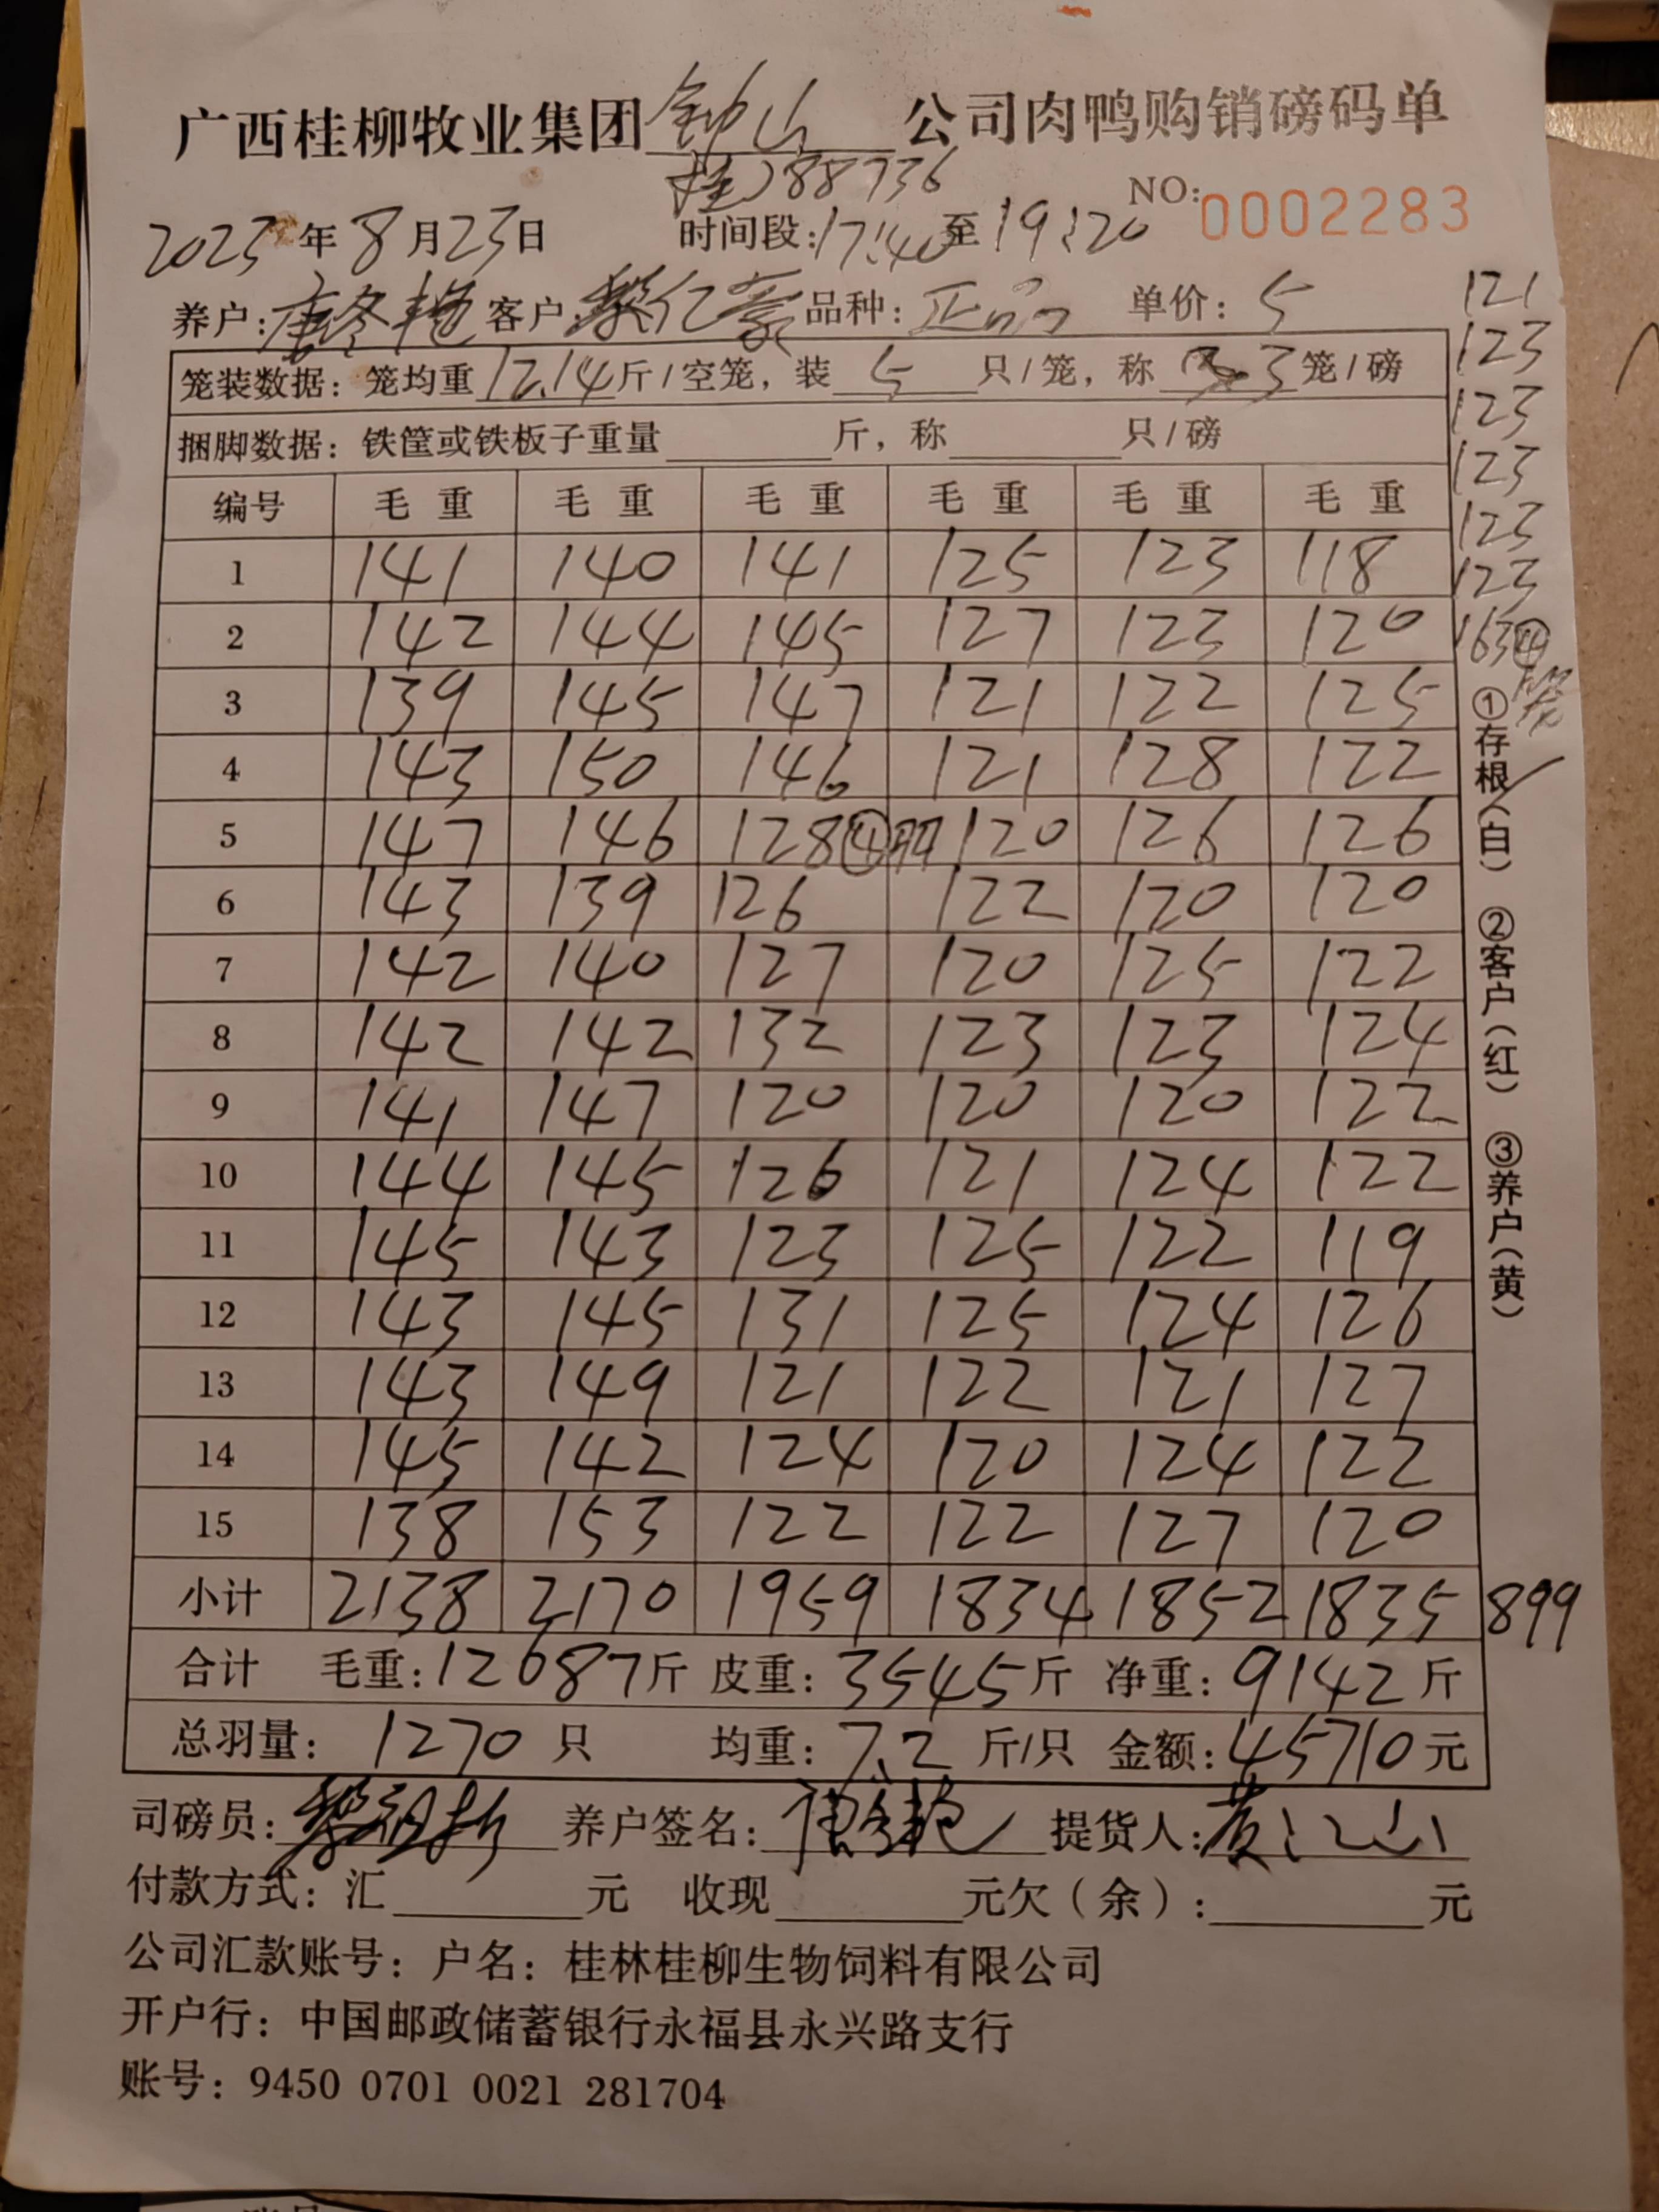 广西桂柳牧业集团钟山公司肉鸭购销磅码单
桂J88736
NO:0002283
2025年8月23日 时间段:17:40至19:20
养户:唐冬艳 客户:黎仁豪 品种:正品 单价:5
笼装数据:笼均重12.14斤/空笼,装5只/笼,称3笼/磅
捆脚数据:铁筐或铁板子重量 斤,称 只/磅
编号 毛重 毛重 毛重 毛重 毛重 毛重
1 141 140 141 125 123 118
2 142 144 145 127 123 120
3 139 145 147 121 122 125
4 143 150 146 121 128 122
5 147 146 128④ 120 126 126
6 143 139 126 122 120 120
7 142 140 127 120 125 122
8 142 142 132 123 123 124
9 141 147 120 120 120 122
10 144 145 126 121 124 122
11 145 143 123 125 122 119
12 143 145 131 125 124 126
13 143 149 121 122 121 127
14 145 142 124 120 124 122
15 138 153 122 122 127 120
小计 2138 2170 1959 1834 1852 1835 899
合计 毛重:12687斤 皮重:3545斤 净重:9142斤
总羽量:1270只 均重:7.2斤/只 金额:45710元
司磅员: 养户签名:唐冬艳 提货人:黄江山
付款方式:汇 元 收现 元欠(余): 元
公司汇款账号:户名:桂林桂柳生物饲料有限公司
开户行:中国邮政储蓄银行永福县永兴路支行
账号:9450 0701 0021 281704
121
123
123
123
123
123
163④笼
①存根(白) ②客户(红) ③养户(黄)